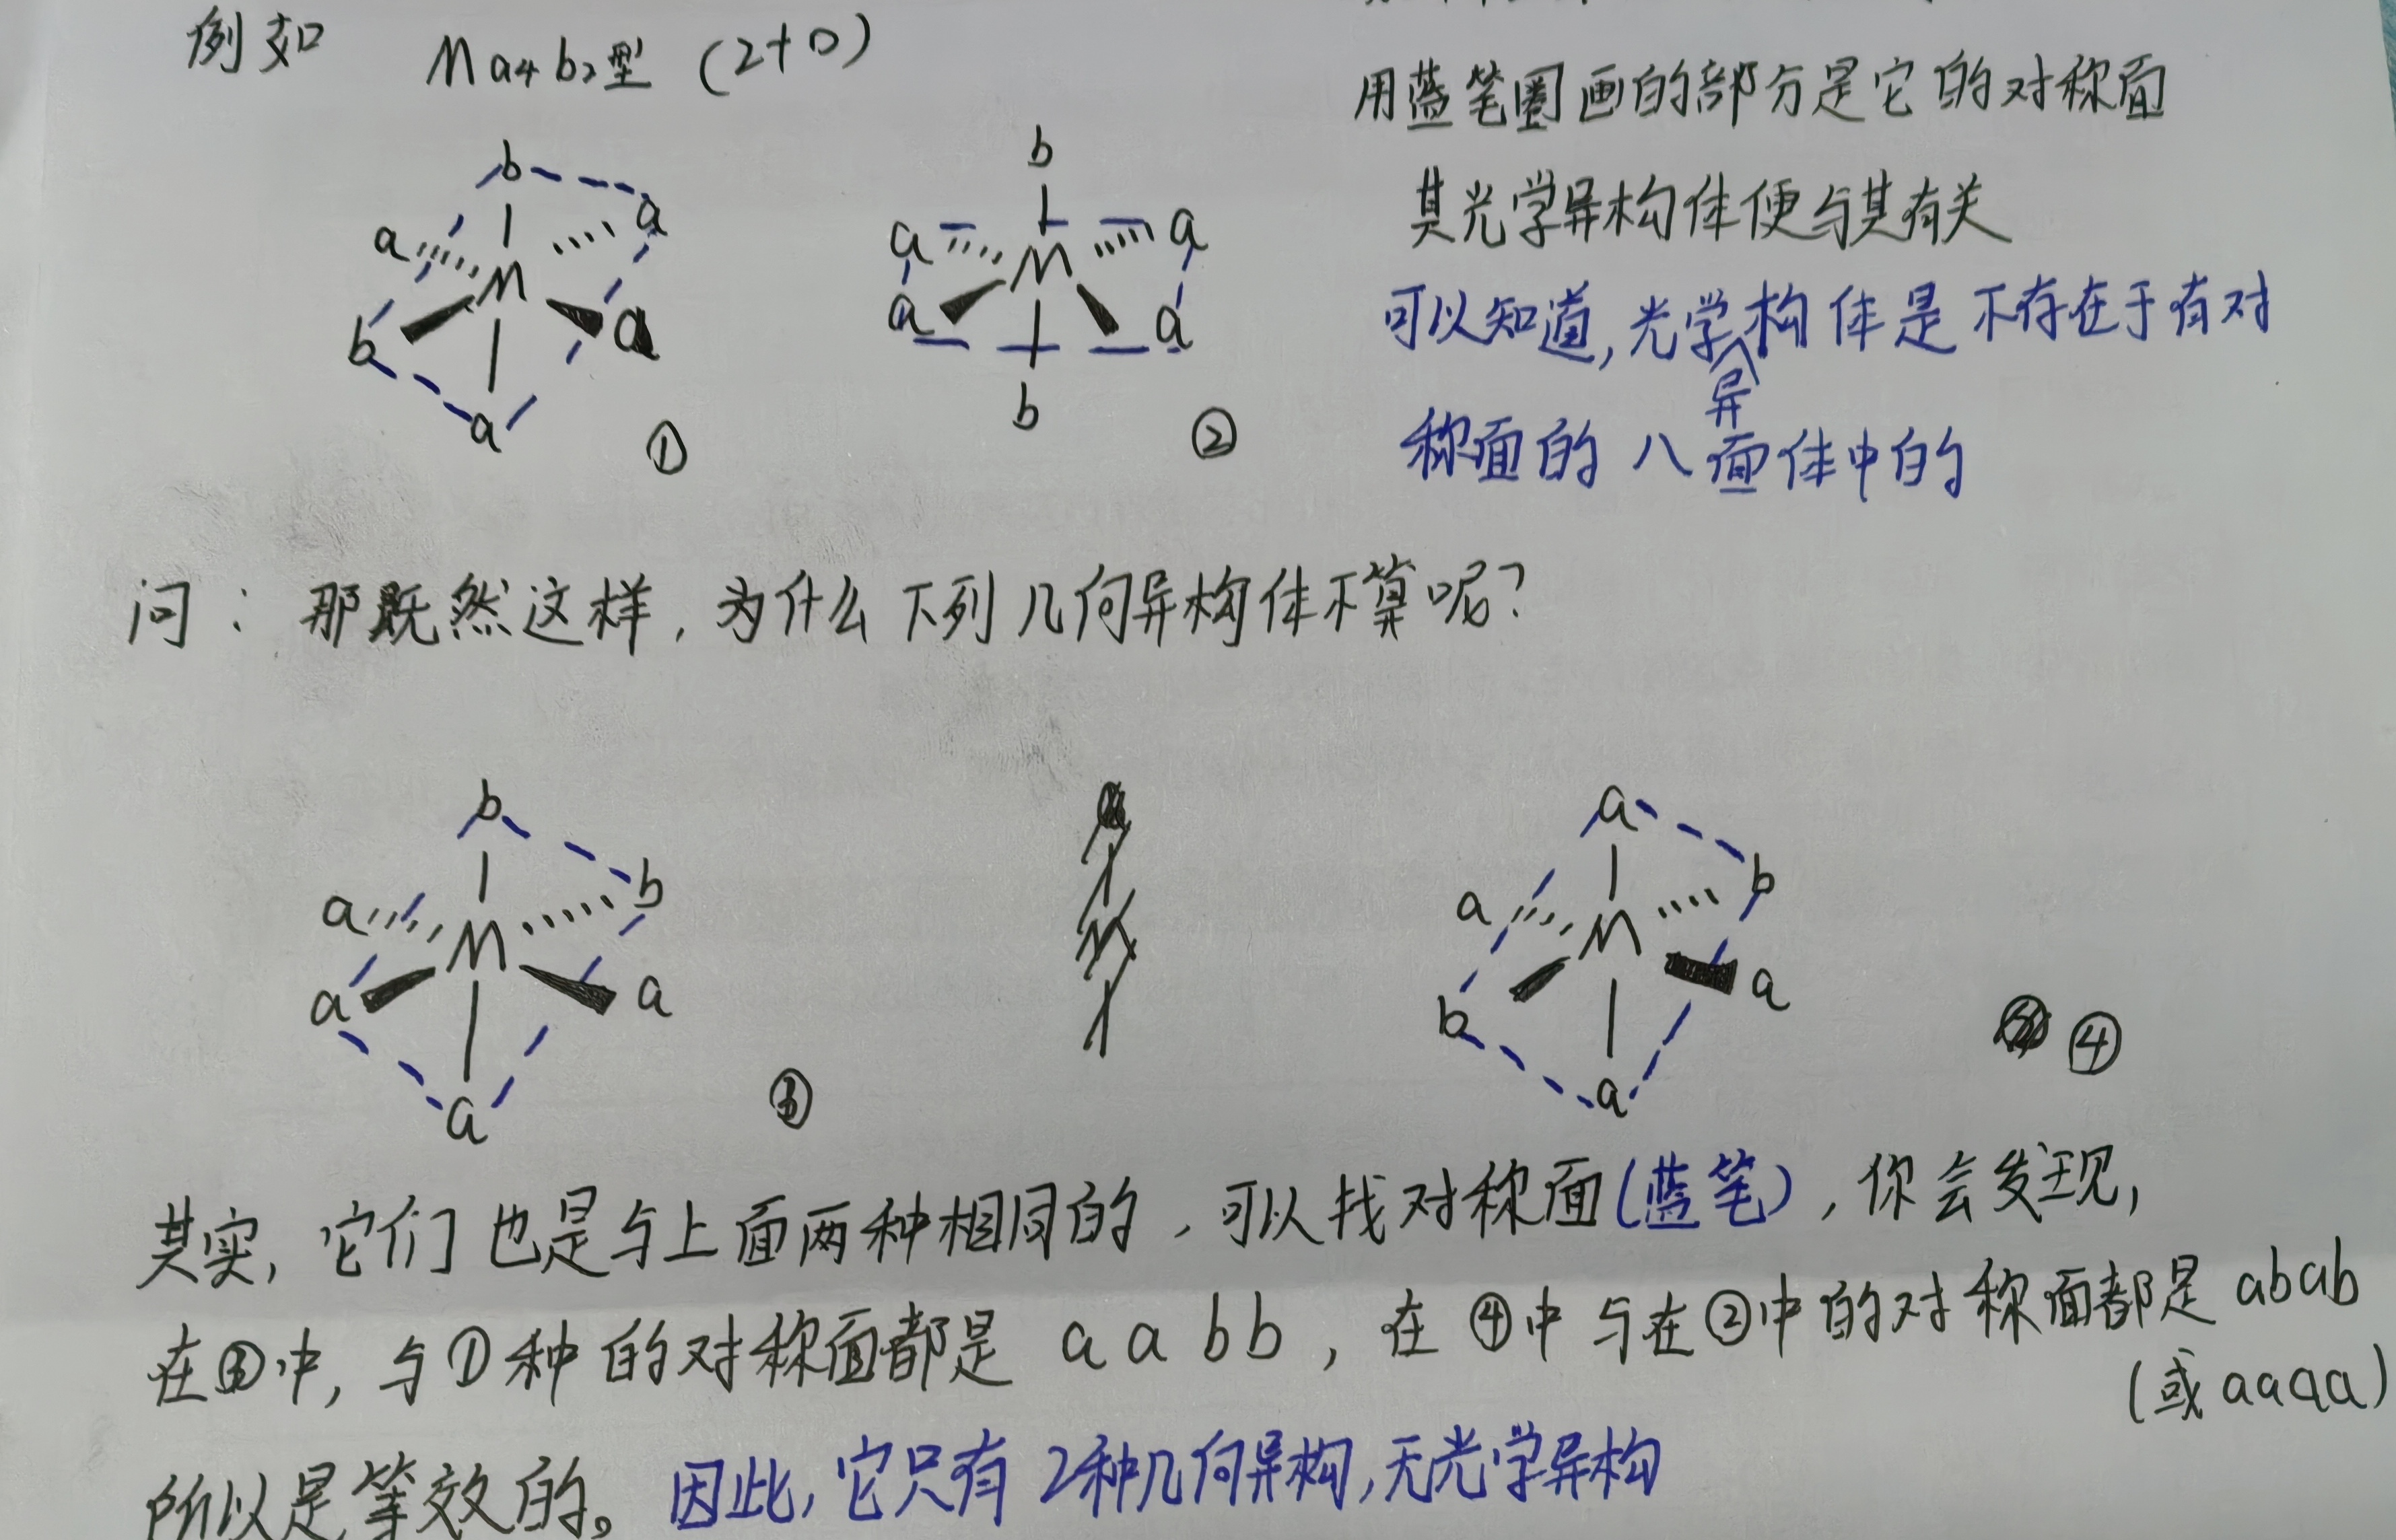 例如 Ma4b2型 (2+0)
用蓝笔圈画的部分是它的对称面
其光学异构体便与其有关
可以知道,光学异构体是不存在于有对
称面的八面体中的
b
a a
M
b a
a
①
b
a a
M
a a
b
②
问:那既然这样,为什么下列几何异构体不算呢?
b
a b
M
a a
a
③
a
a b
M
b a
a
④
其实,它们也是与上面两种相同的,可以找对称面(蓝笔),你会发现,
在③中,与①种的对称面都是 aabb,在④中与在②中的对称面都是abab
(或aaaa)
所以是等效的。因此,它只有2种几何异构,无光学异构